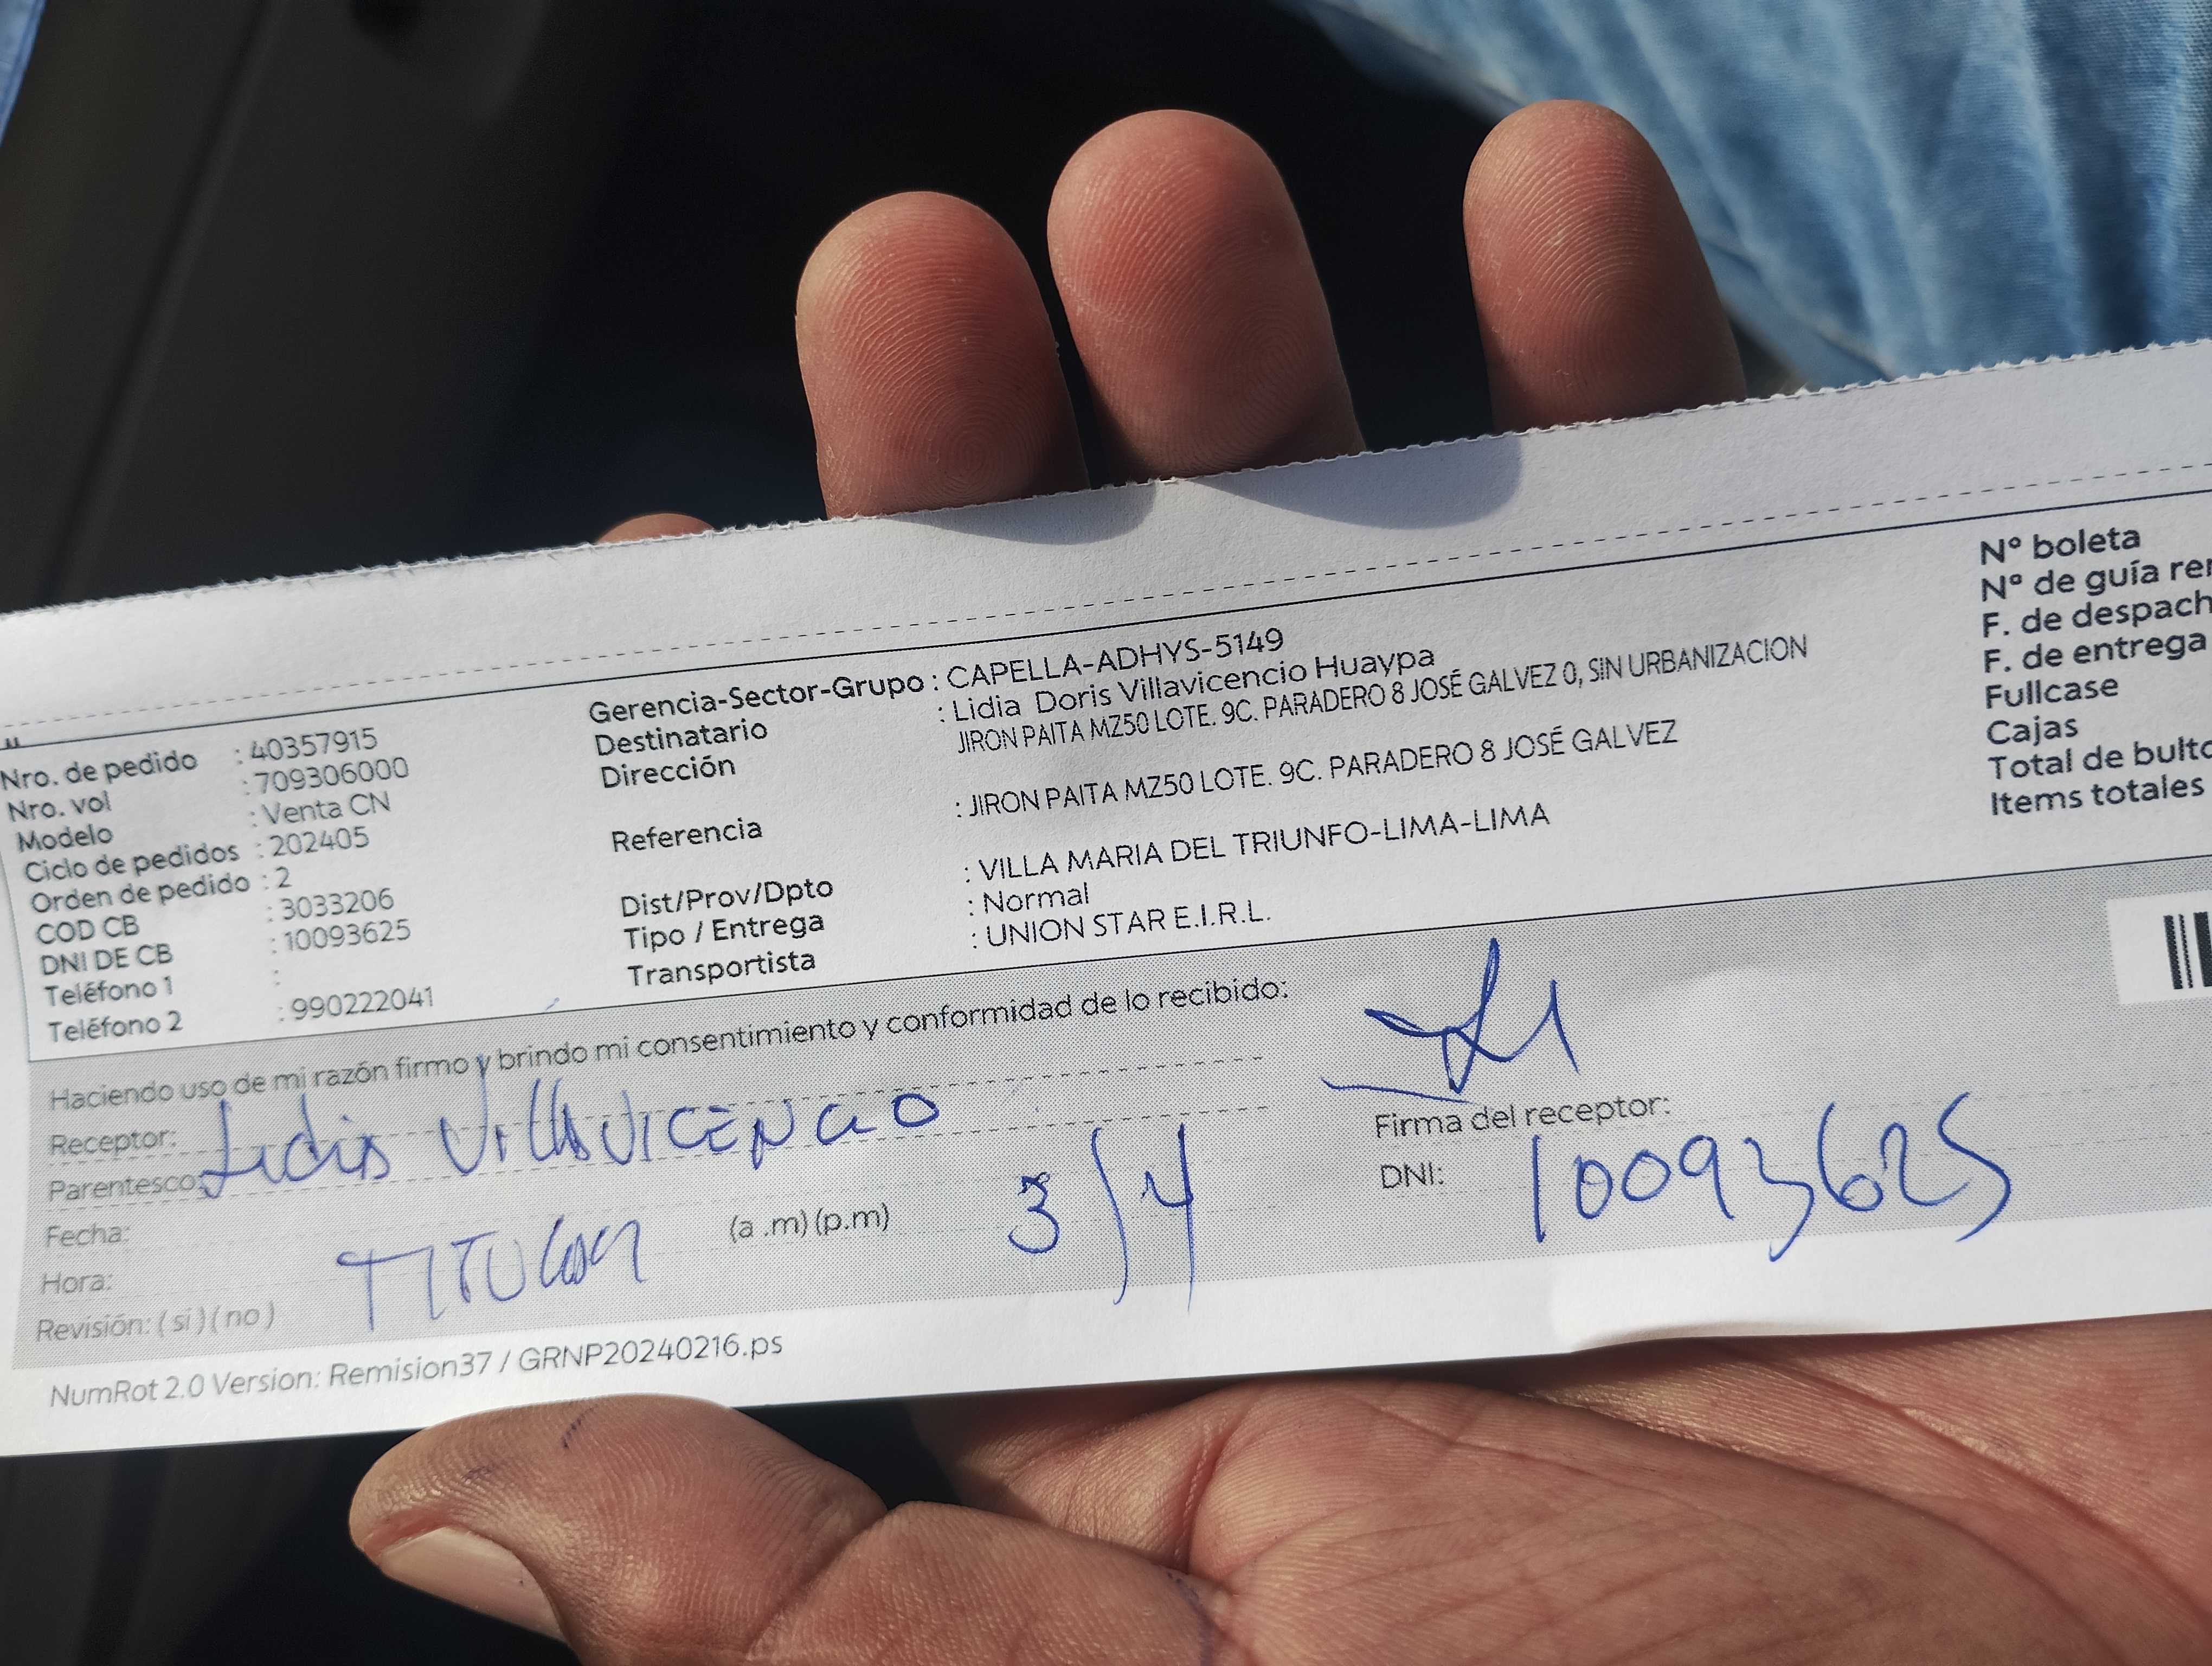 Nro. de pedido : 40357915
Nro. vol : 709306000
Modelo : Venta CN
Ciclo de pedidos : 202405
Orden de pedido : 2
COD CB : 3033206
DNI DE CB : 10093625
Teléfono 1 :
Teléfono 2 : 990222041
Gerencia-Sector-Grupo : CAPELLA-ADHYS-5149
Destinatario : Lidia Doris Villavicencio Huaypa
Dirección JIRON PAITA MZ50 LOTE. 9C. PARADERO 8 JOSÉ GALVEZ 0, SIN URBANIZACION
Referencia : JIRON PAITA MZ50 LOTE. 9C. PARADERO 8 JOSÉ GALVEZ
Dist/Prov/Dpto : VILLA MARIA DEL TRIUNFO-LIMA-LIMA
Tipo / Entrega : Normal
Transportista : UNION STAR E.I.R.L.
N° boleta
N° de guía
F. de
F. de entrega
Fullcase
Cajas
Total de
Items totales
Haciendo uso de mi razón firmo y brindo mi consentimiento y conformidad de lo recibido:
Receptor: Lidia VillaVICENCIO
Parentesco:
Fecha: TITULAR 3/4
Hora: (a .m) (p.m)
Revisión: ( si ) ( no )
Firma del receptor:
DNI: 10093625
NumRot 2.0 Version: Remision37 / GRNP20240216.ps